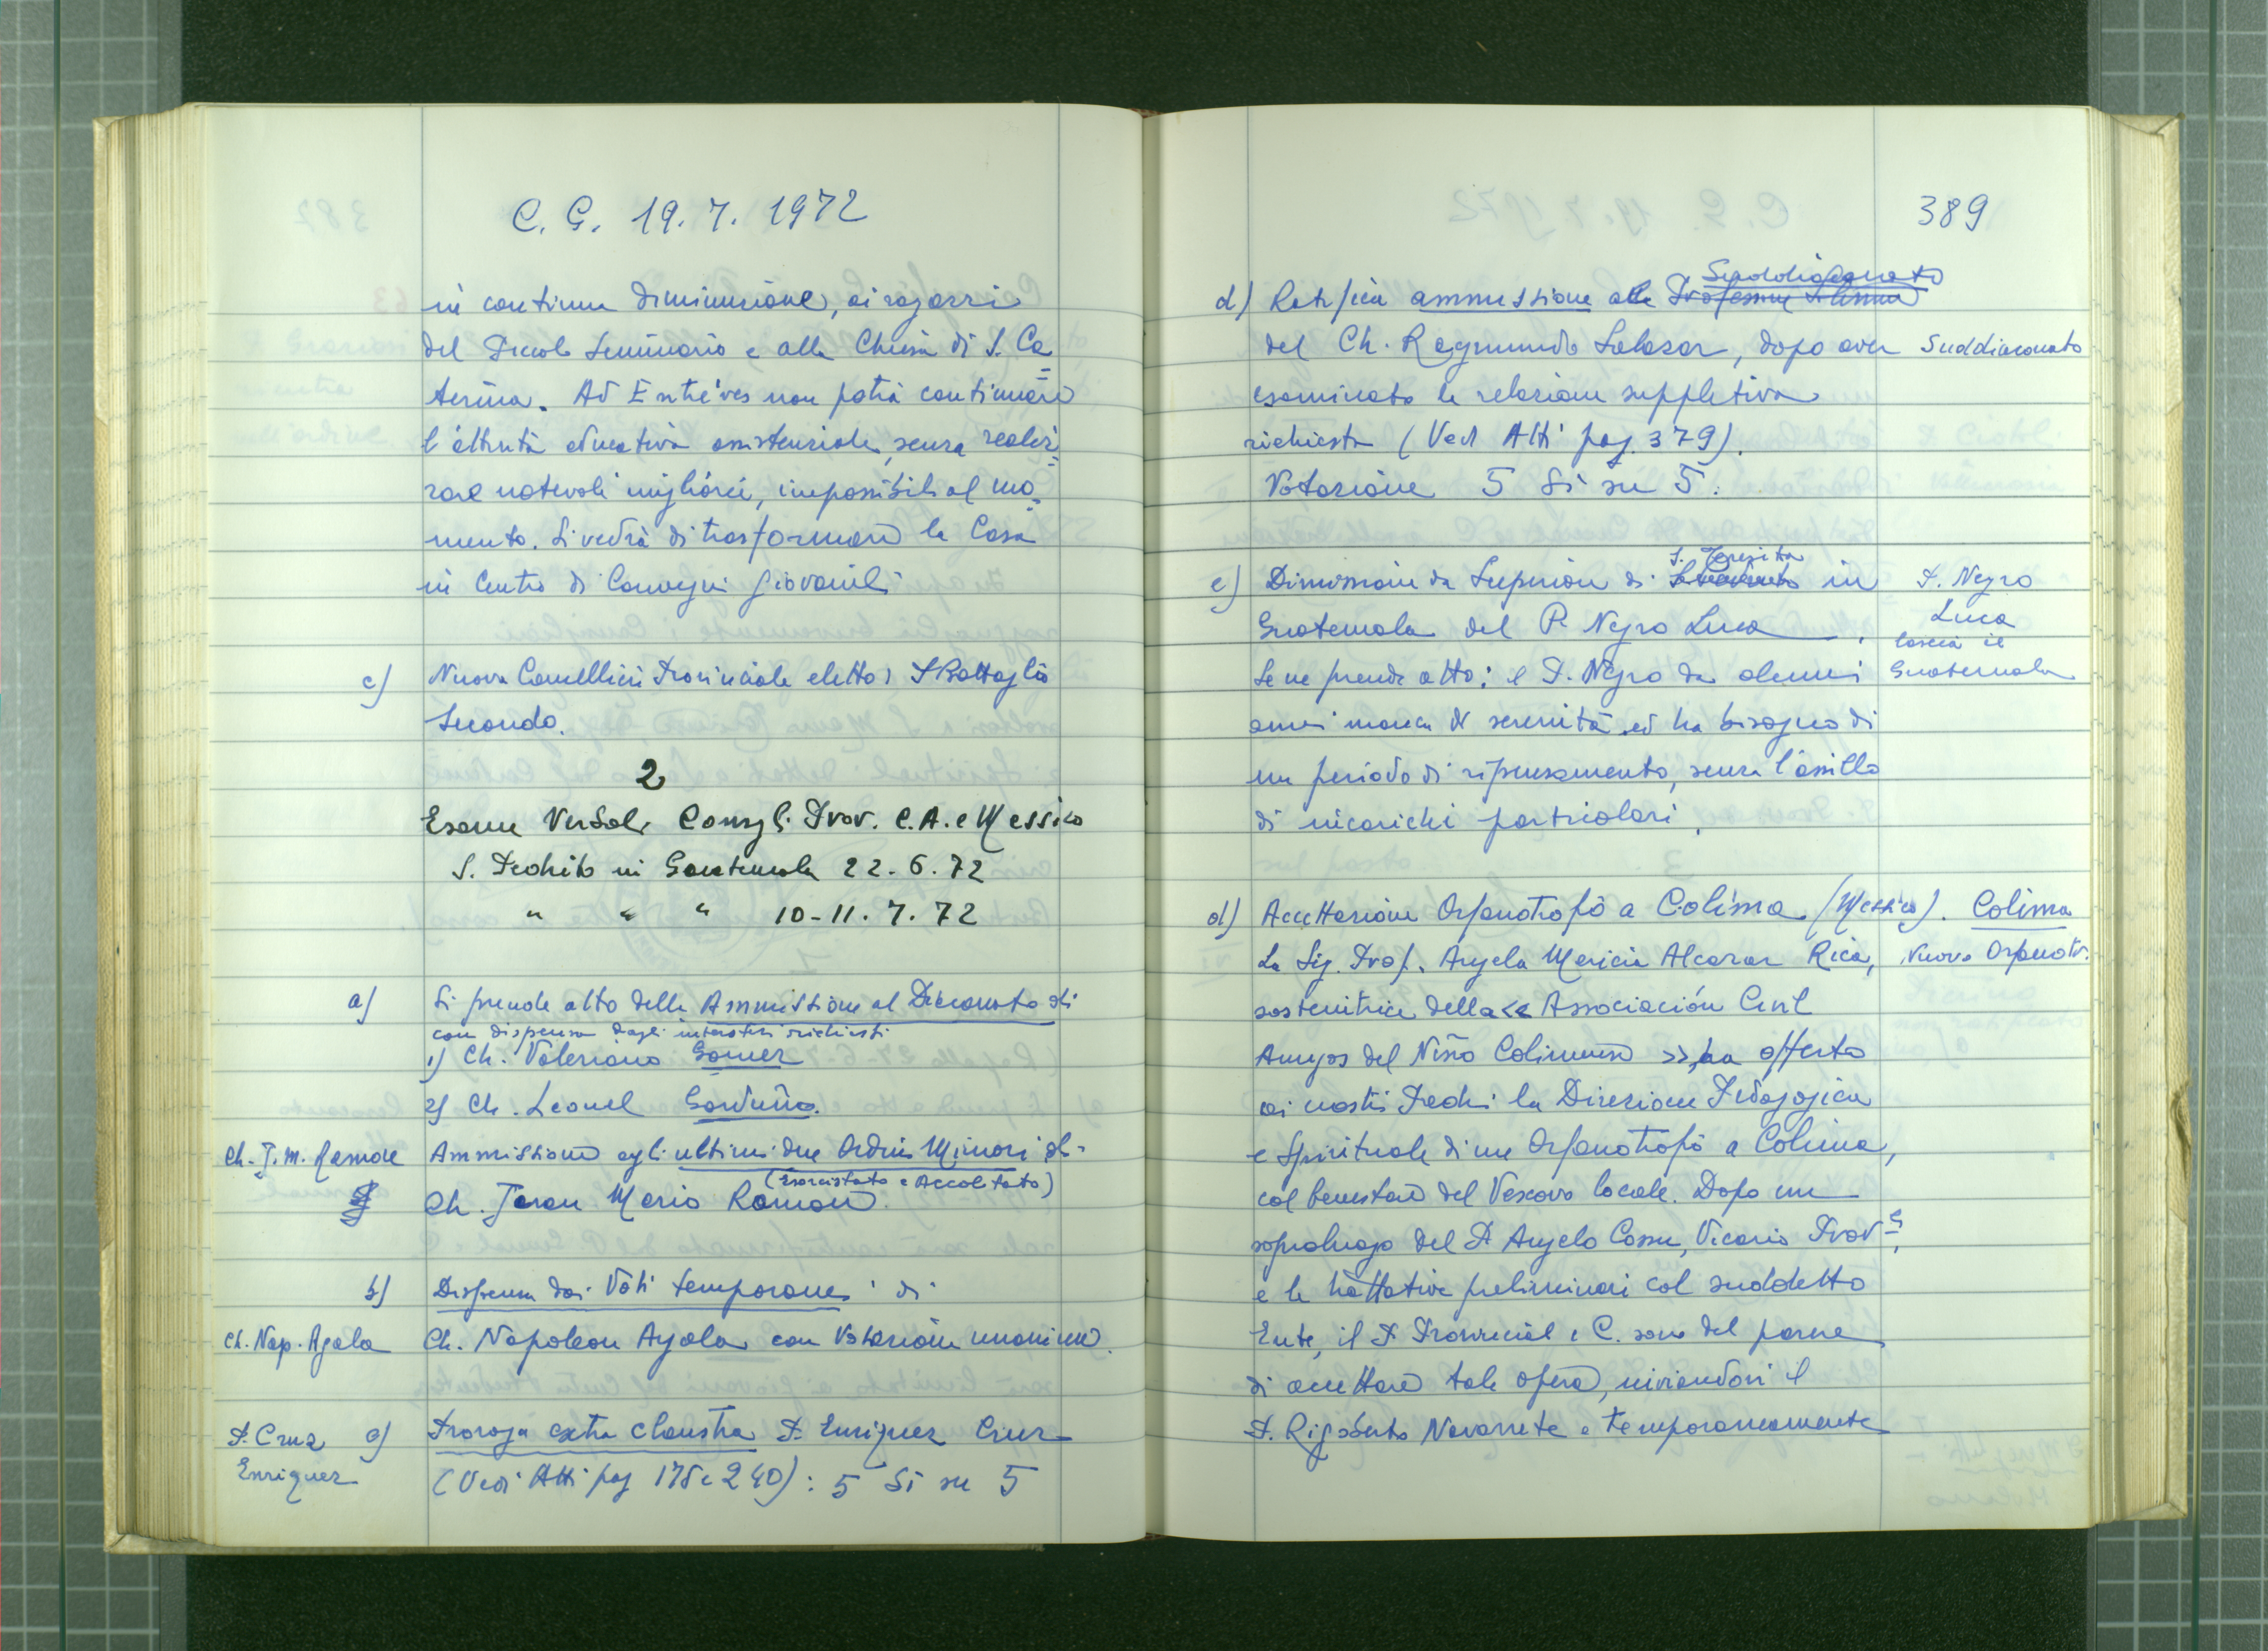 C. G. 19. 7. 1972
in continua diminuzione, ai ragazzi
del Piccolo Seminario e alla Chiesa di S. Ca=
terina. Ad Entrèves non potrà continuare
l'attività educativa assistenziale, senza realiz=
zare notevoli migliorie, impossibili al mo=
mento. Si vedrà di trasformare la Casa
in Centro di Convegni giovanili
c) Nuovo Cancelliere Provinciale eletto: P. Battaglio
Secondo.
2
Esame Verbali Consigli Prov. C.A. e Messico
S. Pedrito in Guatemala 22. 6. 72
" " " 10-11. 7. 72
a) Si prende atto della Ammissione al Diaconato di
con dispensa dagli interstizi richiesti
1) Ch. Valeriano Gomez
2) Ch. Leonel Gorduño.
Ch. J. M. Ramon
Ammissione agli ultimi due Ordini Minori del
(Esorcistato e Accolitato)
Ch. Jaran Mario Ramon.
b) Dispensa dai Voti temporanei di
Ch. Nap. Ayala
Ch. Napoleon Ayala con Votazione unanime.
P. Cruz
Enriquez
c) Proroga extra claustra P. Enriquez Cruz
(Vedi Atti pag 178 e 240): 5 Si su 5
389
Suddiaconato
d) Ratifica ammissione alla Professione Solenne
del Ch. Raymundo Salazar, dopo aver
Suddiaconato
esaminato la relazione suppletiva
richiesta (Ved Atti pag. 379).
Votazione 5 Si su 5.
S. Teresita
e) Dimissioni da Superiore di in
Guatemala del P. Negro Luca.
P. Negro
Luca
lascia il
Guatemala
Se ne prende atto: il P. Negro da alcuni
anni manca di serenità ed ha bisogno di
un periodo di ripensamento, senza l'assillo
di incarichi particolari.
d) Accettazione Orfanotrofio a Colima (Messico).
Colima
Nuovo Orfanotr.
La Sig. Prof. Angela Mericia Alcazar Rica,
sostenitrice della << Associación Civil
Amigos del Niño Colimense >>, ha offerto
ai nostri Padri la Direzione Pedagogica
e Spirituale di un Orfanotrofio a Colima,
col benestare del Vescovo locale. Dopo un
sopraluogo del P. Angelo Cossu, Vicario Prov.le,
e le trattative preliminari col suddetto
Ente, il P. Provincial e C. sono del parere
di accettare tale opera, inviandovi il
P. Rigoberto Navarrete e temporaneamente